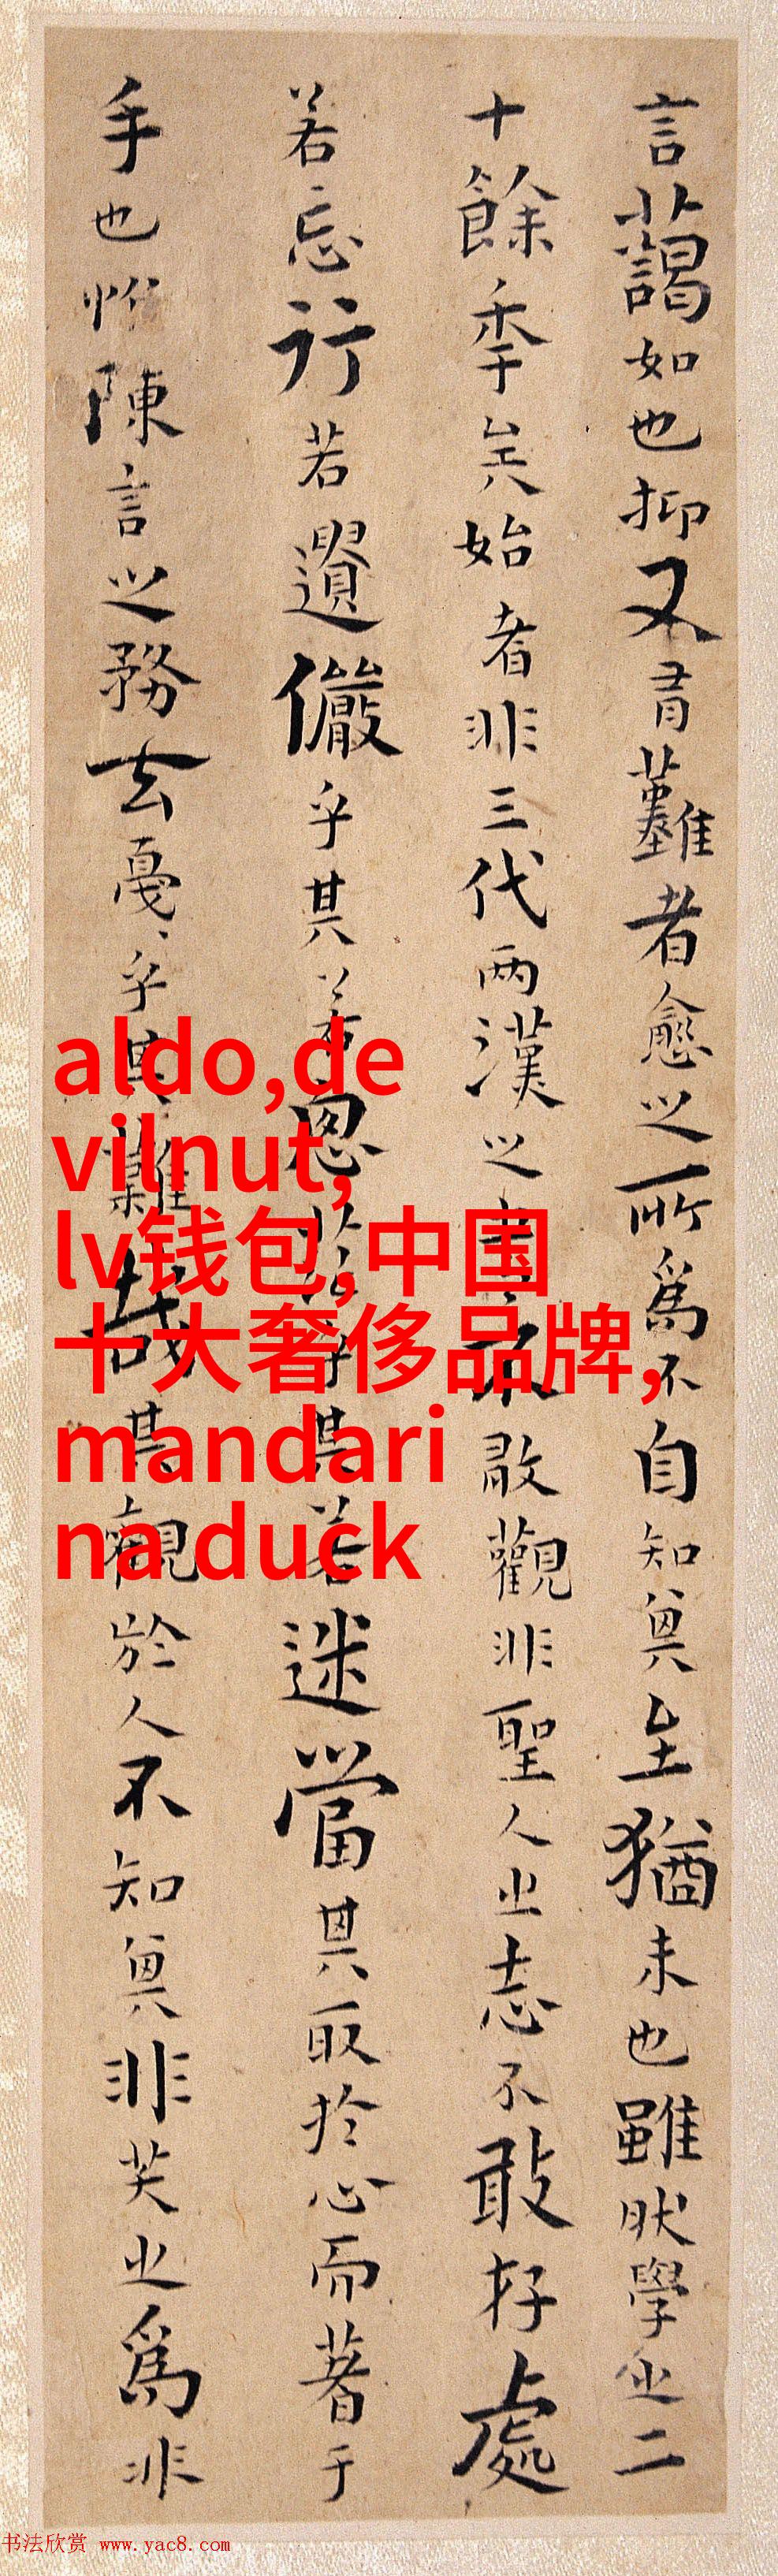 言藹如也抑又有難者愈之所爲不自知其至猶未也雖然學之二
十餘年矣始者非三代两漢之書不敢觀非聖人之志不敢存處
若忘行若遺儼乎其若思茫乎其若迷當其取於心而著于
手也惟陳言之務去戛戛乎其難哉其觀於人不知其非笑之爲非
aldo,de
vilnut,
lv钱包,中国
十大奢侈品牌,
mandari
na duck
书法欣赏 www.yac8.com